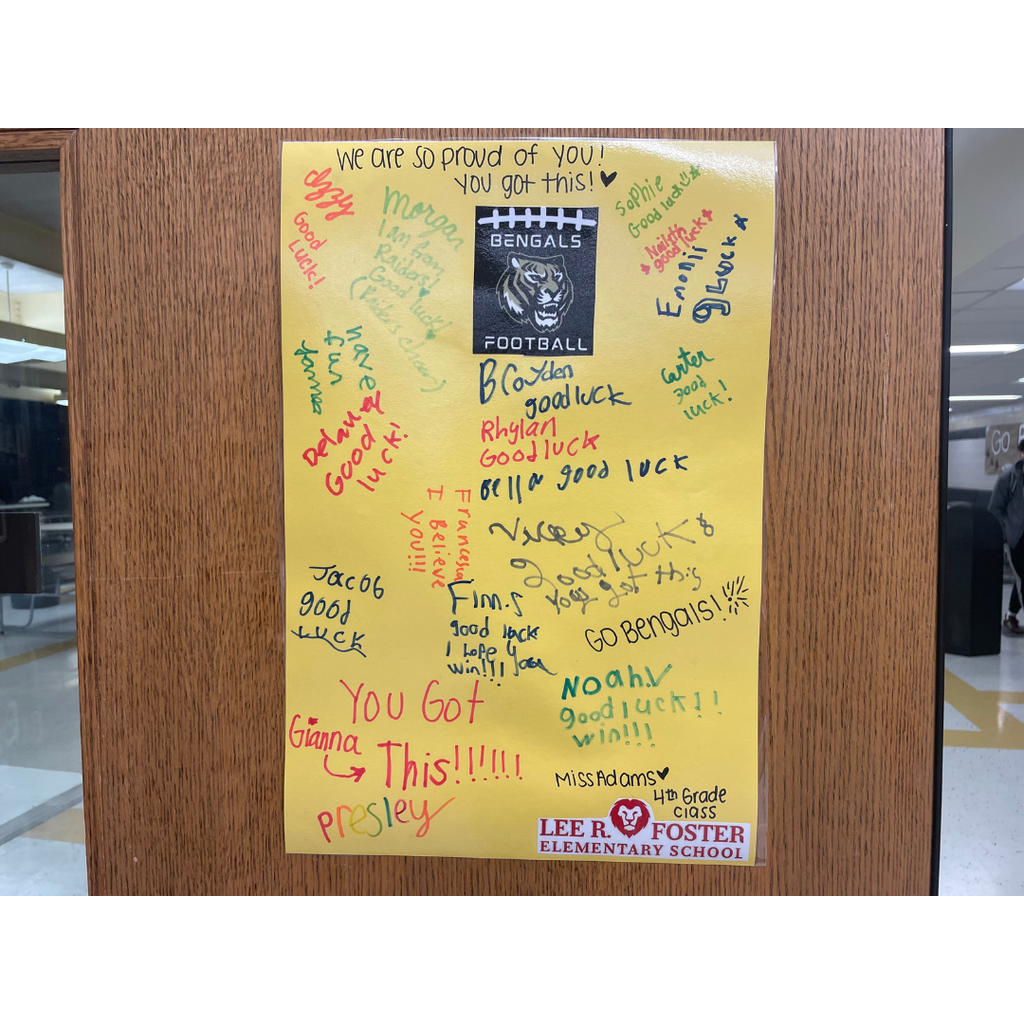 We are so proud of you!
You got this! ♥
Izzy
Good
Luck!
Morgan
I am from
Raiders!
Good luck!
Sophie
Good luck
good luck
Emonii
g Luck
BENGALS
FOOTBALL
have
fun
Delan
Good
luck!
Brayden
good luck
Carter
good
luck!
Rhylan
Good luck
Bella good luck
Francesca
I Believe
You!!!
good luck
You got this
Jacob
good
Luck
Finn.S
good luck
I hope y
win!!!
Go Bengals!
You Got
Gianna
This!!!!!!
Noah
good luck!!
win!!!
Presley
Miss Adams ♥
4th Grade
class
LEE R. FOSTER
ELEMENTARY SCHOOL